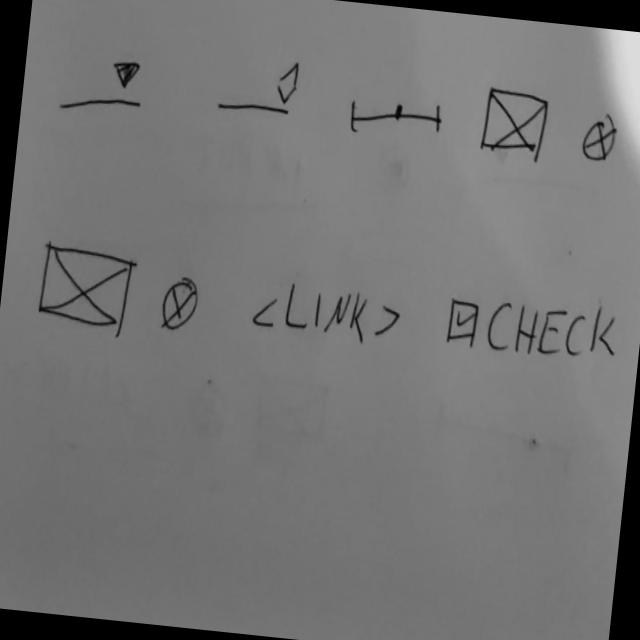 <LINK> CHECK